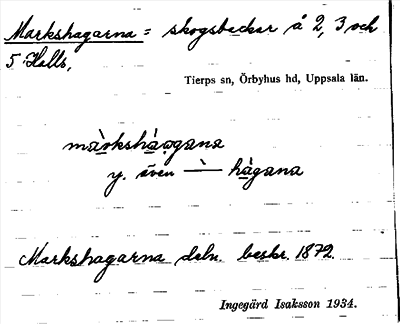 Markshagarna = skogsbackar å 2, 3 och
5 Halls,
Tierps sn, Örbyhus hd, Uppsala län.
màrkshàgana
y. även —̀ hàgana
Markshagarna deln. beskr. 1872.
Ingegärd Isaksson 1934.